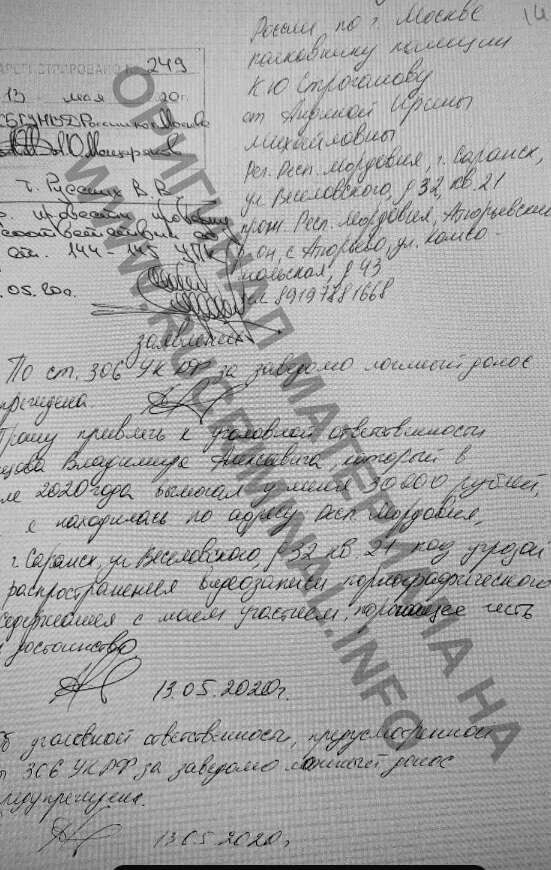 России по г. Москве
полковнику полиции
К Ю Строганову
от Ирины
Михайловны
Рег. Респ. Мордовия, г. Саранск,
ул Веселовского, д 32, кв. 21
прож. Респ. Мордовия, Атюрьевский
р-он, с Атюрьево, ул. Комсо-
мольская, д 43
тел 89197781668
249
13 мая 20 г.
Русских В. В.
ст. 144-145 УПК
.05.20г.
заявление
По ст. 306 УК РФ за заведомо ложный донос
Прошу привлечь к уголовной ответственности
Владимира который в
2020 года вымогал у меня 30 000 рублей,
находилась по адресу Респ. Мордовия,
г. Саранск, ул Веселовского, д 32 кв. 21 под угрозой
распространения видеозаписи порнографического
содержания с моим участием, порочащее честь
и достоинство
13.05.2020г.
Об уголовной ответственности, предусмотренной
306 УК РФ за заведомо ложный донос
предупреждена.
13.05.2020г.
ОРИГИНАЛ МАТЕРИАЛА НА
WWW.RUCRIMINAL.INFO